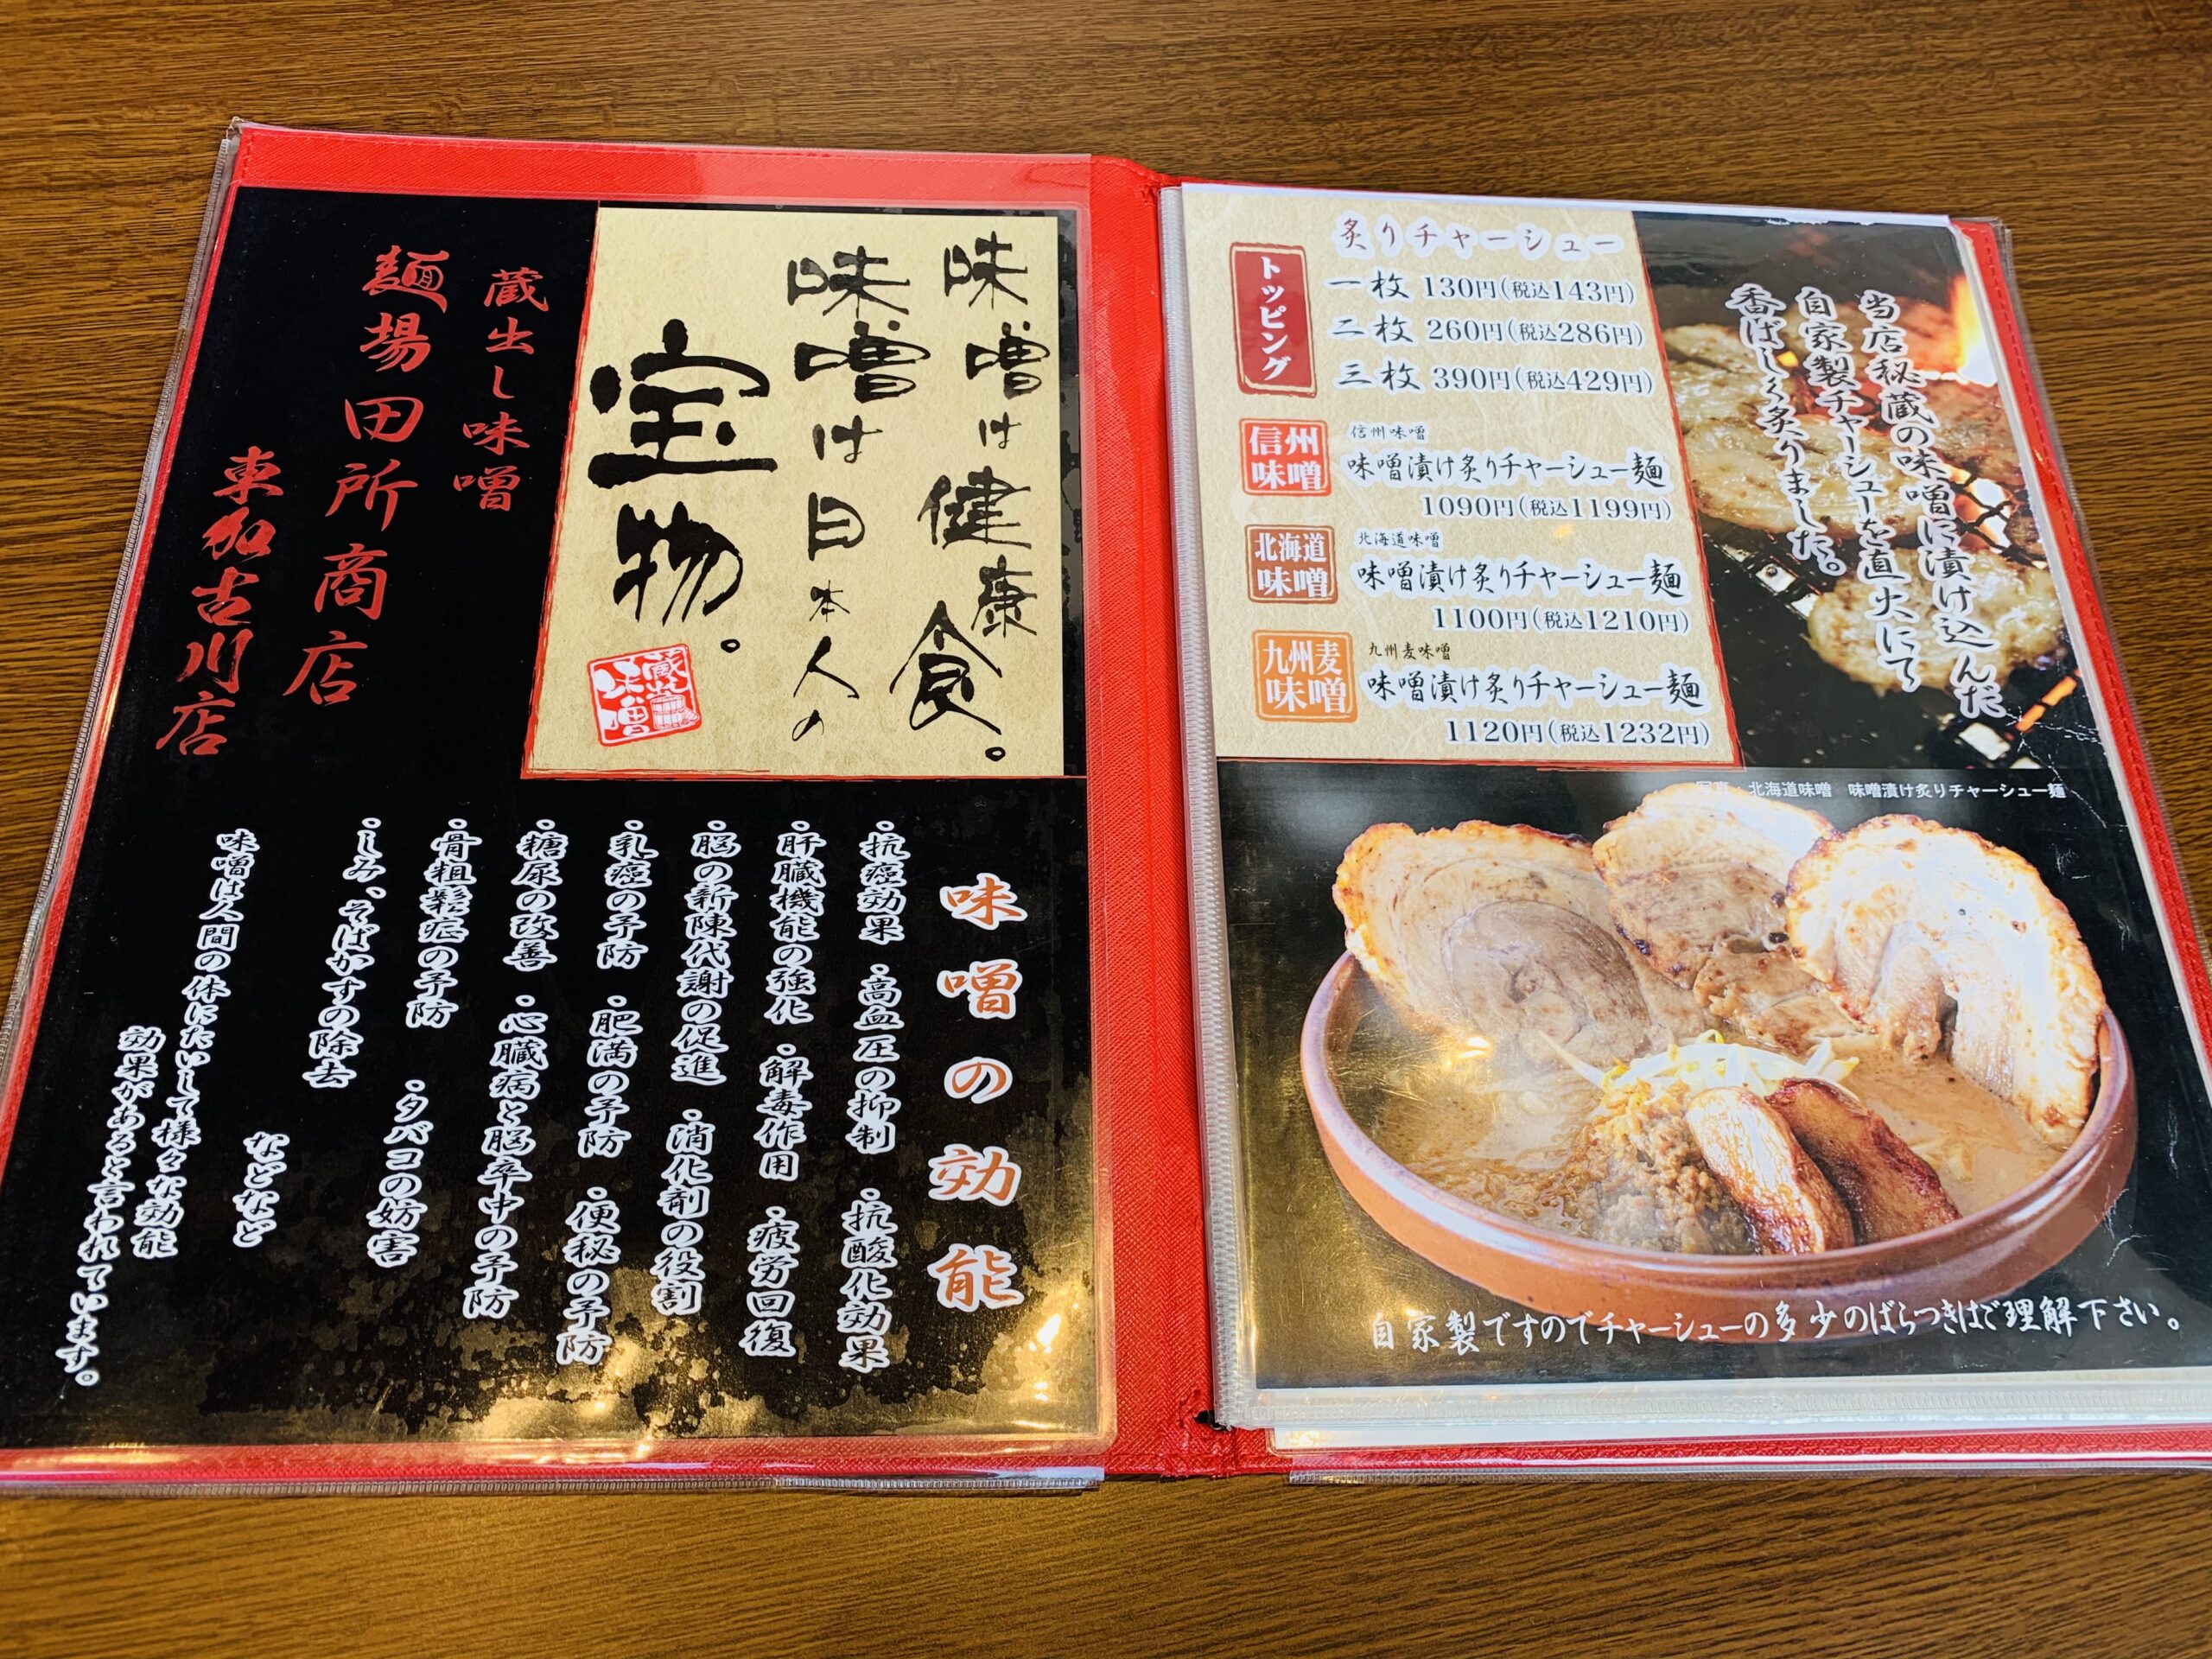 味噌は健康食。
味噌は日本人の
宝物。
蔵出し味噌
蔵出し味噌
麺場田所商店
東加古川店
味噌の効能
・抗癌効果 ・高血圧の抑制 ・抗酸化効果
・肝臓機能の強化 ・解毒作用 ・疲労回復
・脳の新陳代謝の促進 ・消化剤の役割
・乳癌の予防 ・肥満の予防 ・便秘の予防
・糖尿の改善 ・心臓病と脳卒中の予防
・骨粗鬆症の予防 ・タバコの妨害
・しみ、そばかすの除去
などなど
味噌は人間の体にたいして様々な効能
効果があると言われています。
トッピング
炙りチャーシュー
一枚 130円(税込143円)
二枚 260円(税込286円)
三枚 390円(税込429円)
信州
味噌
信州味噌
味噌漬け炙りチャーシュー麺
1090円(税込1199円)
北海道
味噌
北海道味噌
味噌漬け炙りチャーシュー麺
1100円(税込1210円)
九州麦
味噌
九州麦味噌
味噌漬け炙りチャーシュー麺
1120円(税込1232円)
当店秘蔵の味噌に漬け込んだ
自家製チャーシューを直火にて
香ばしく炙りました。
写真：北海道味噌　味噌漬け炙りチャーシュー麺
自家製ですのでチャーシューの多少のばらつきはご理解下さい。